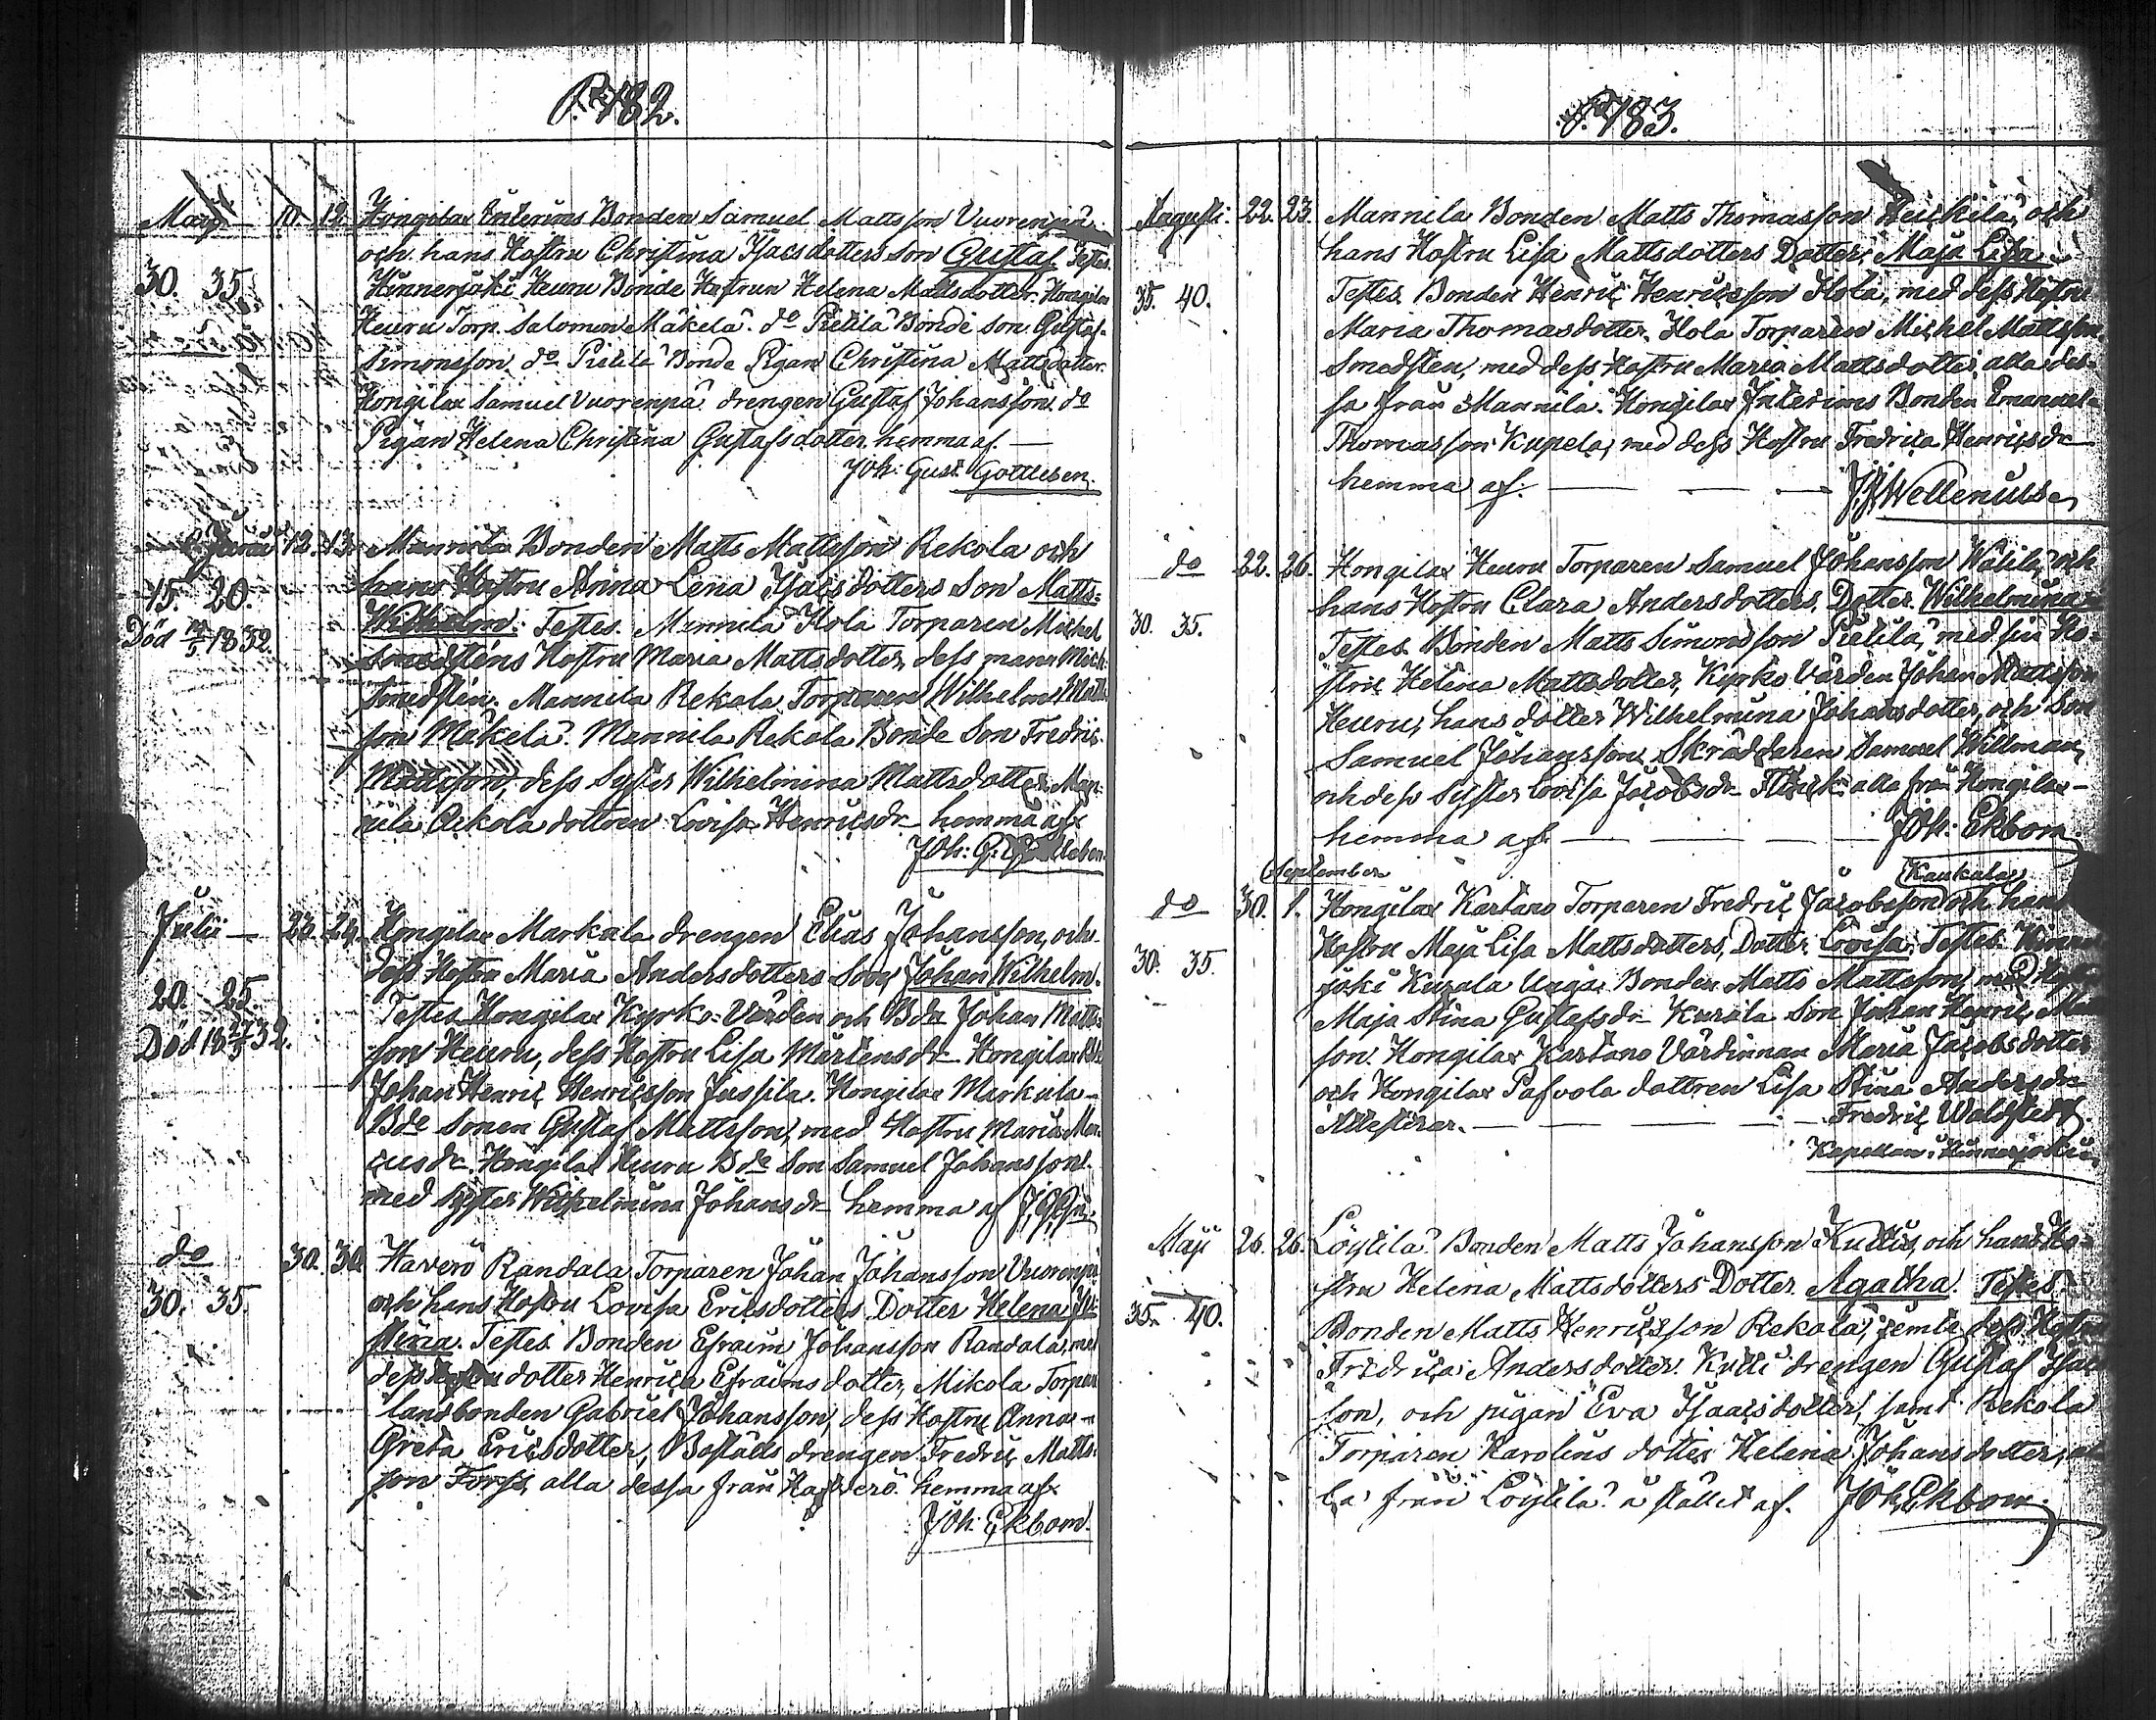 P. 182.
Maji 10. 12. Hongilax Enterims Bonden Samuel Mattsson Vuorenpä
och hans Hustru Christina Isacsdotters Son Gustaf. Testes.
30. 35. Hinnerjoki Heuru Bonde Hustrun Helena Mattsdotter. Hongilax
Heuru Torp. Salomon Mäkelä. do Pietilä Bonde Son Gustaf
Simonsson. do Pietilä Bonde Pigan Christina Mattsdotter.
Hongilax Samuel Vuorenpä drengen Gustaf Johansson. do
Pigan Helena Christina Gustafsdotter hemma af. —
Joh: Gust. Gottleben.
Junii 12. 13. Mannila Bonden Matts Mattsson Rekola och
hans Hustru Anna Lena Isacsdotters Son Matts=
15. 20. Wilhelm. Testes. Mannila Hola Torparen Michel
Död 1832. Smedsténs Hustru Maria Mattsdotter, dess man Mich:
Smedstén. Mannila Rekola Torparen Wilhelm Matts
son Mäkelä. Mannila Rekola Bonde Son Fredric
Mattsson, dess Syster Wilhelmina Mattsdotter. Man=
nila Rekola dottren Lovisa Henricsdr hemma af
Joh: G: Gottleben.
Julii — 23. 24. Hongilax Markula drengen Elias Johansson, och
dess Hustru Maria Andersdotters Son Johan Wilhelm.
20. 25. Testes Hongilax Kyrko-Värden och Bdn Johan Matts=
Död 1832. son Heuru, dess Hustru Lisa Mårtensdr Hongilax
Johan Henric Henricsson Jussila. Hongilax Markula
Bde Sonen Gustaf Mattsson, med Hustru Maria Mar
cusdr. Hongilax Heuru Bde Son Samuel Johansson
med Syster Wilhelmina Johansdr hemma af
do 30. 30. Haverö Randala Torparen Johan Johansson Vuorenpä
30. 35. och hans Hustru Lovisa Ericsdotters Dotter Helena Ju=
stina. Testes Bonden Efraim Johansson Randala, med
dess dotter Henrica Efraimsdotter, Mikola Torpar
landbonden Gabriel Johansson, dess Hustru Anna
Greta Ericsdotter, Boställs drengen Fredric Matts=
son Forss, alla dessa från Hafverö hemma af
Joh: Ekbom.
P. 183.
Augusti: 22. 23. Mannila Bonden Matts Thomasson Heickilä, och
hans Hustru Lisa Mattsdotters Dotter, Maja Lisa.
35. 40. Testes Bonden Henric Henricsson Hola, med dess Hustru
Maria Thomasdotter. Hola Torparen Michel Mattsson
Smedstén, med dess Hustru Maria Mattsdotter, alla des=
sa från Mannila. Hongilax Interims Bonden Emanuel
Thomasson Kupela, med dess Hustru Fredrica Henricsdr
hemma af. — J. J. Wellenius
do 22. 26. Hongilax Heuru Torparen Samuel Johansson Wälilä, och
hans Hustru Clara Andersdotters, Dotter Wilhelmina
30. 35. Testes Bonden Matts Simonsson Pietilä, med sin Hu=
stru Helena Mattsdotter, Kyrko Värden Johan Mattsson
Heuru, hans dotter Wilhelmina Johansdotter, och Son
Samuel Johansson. Skräddaren Samuel Willman,
och dess Syster Lovisa Jacobsdr Flinck alla från Hongilax
hemma af. — Joh: Ekbom.
September Kaukula
do 30. 1. Hongilax Kartano Torparen Fredric Jacobsson och hans
30. 35. Hustru Maja Lisa Mattsdotters, Dotter Lovisa. Testes Hinner
joki Kurala Unga Bonden Matts Mattsson, med
Maja Stina Gustafsdr Kurala Son Johan Henric
son. Hongilax Kartano Värdinnan Maria Jacobsdotter
och Hongilax Pafvola dottren Lisa Stina Andersdr
Attesterar. — Fredric Waldstedt
Kapellan i Hinnerjoki
Maji 26. 26. Löytilä Bonden Matts Johansson Kutti, och hans Hu=
stru Helena Mattsdotters Dotter Agatha. Testes
35. 40. Bonden Matts Henricsson Rekola, jemte dess Hustru
Fredrica Andersdotter. Kutti drengen Gustaf Isac
son, och pigan Eva Isaacsdotter, samt Rekola
Torparen Karolins dotter Helena Johansdotter, al
la från Löytilä å stället af. Joh. Ekbom.